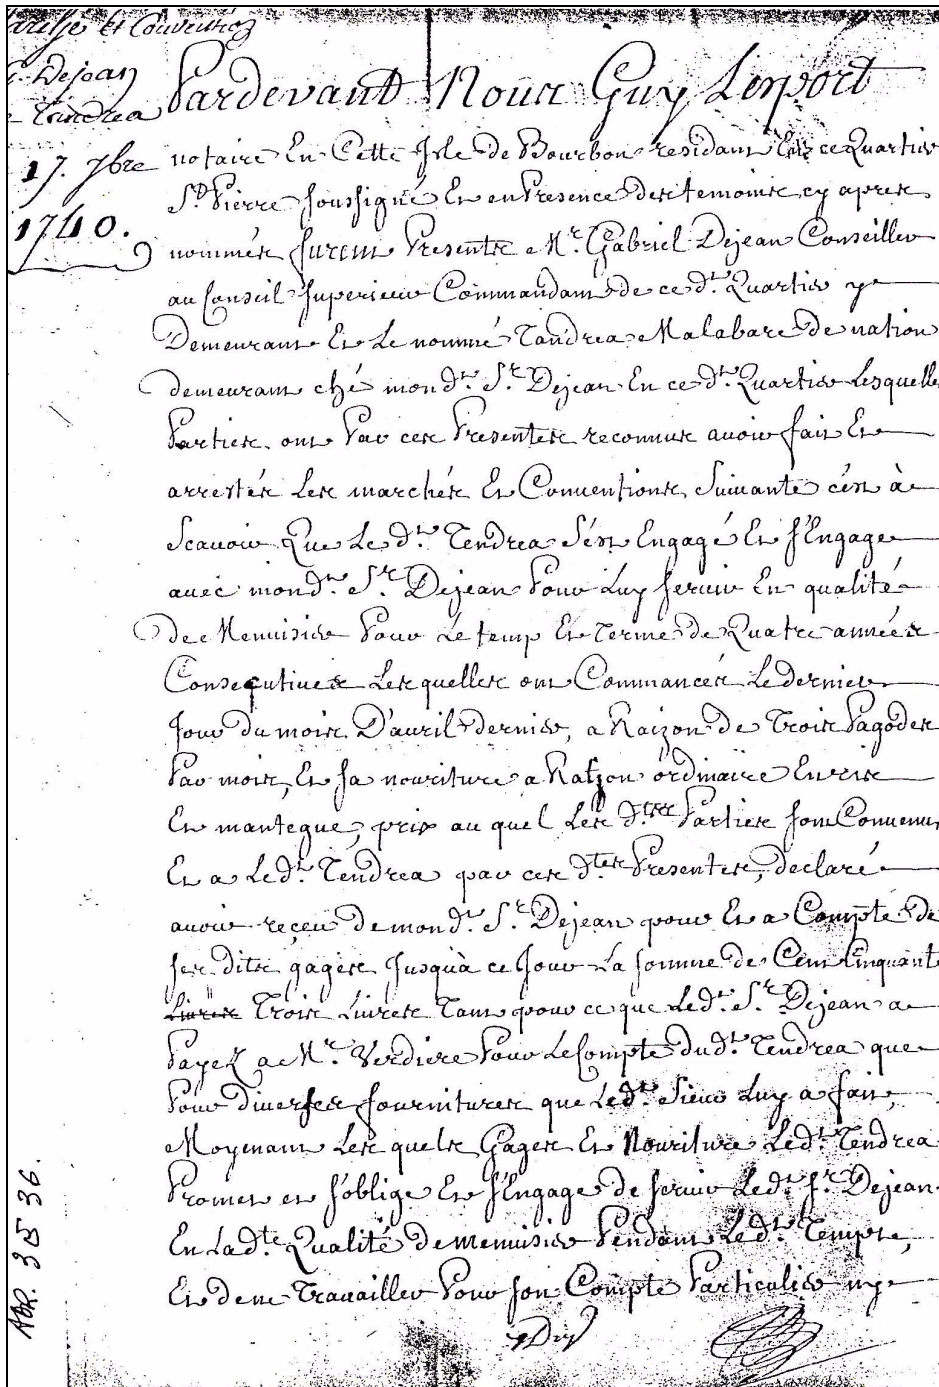 et Conventions
Dejean
Tandrea
17. 7bre
1740.
Pardevant Nous Guy Lesport
notaire En Cette Isle de Bourbon residant En ce Quartier
St. Pierre soussigné Et en Presence des temoins cy apres
nommés furent Presents Mr. Gabriel Dejean Conseiller
au Conseil Superieur Commandant de ce dt. Quartier y
Demeurant Et Le nommé Tandrea Malabare de nation
demeurant ché mondt. Sr. Dejean En ce dt. Quartier Lesquelles
Parties ont Par ces Presentes reconnus avoir fait Et
arrestés Les marchés Et Conventions Suivante c'est à
Scavoir Que Le dt. Tendrea S'est Engagé Et S'Engage
avec mondt. Sr. Dejean Pour Luy servir En qualité
de Menuisier Pour Le temp Et terme de Quatre années
Consequtives Lesquelles ont Commancés Le dernier
Jour du mois D'avril dernier, a Raizon de Trois Pagodes
Par mois, Et sa nouriture a Raizon ordinaire En ris
Et mantegue, prix au quel Les dtes. Parties sont Convenus
Et a Le dt. Tendrea par ces dtes. Presentes, declaré
avoir reçeu de mondt. Sr. Dejean pour Et a Compte de
ses dits gages Jusqu'à ce Jour La somme de Cent Cinquante
Livres Trois Livres Tant pour ce que Le dt. Sr. Dejean a
Payez a Mr. Verdiere Pour Le Compte dudt. Tendrea que
Pour diverses fournitures que Ledt. Sieur Luy a fait,
Moyenant Lesquels Gages Et Nouriture Ledt. Tendrea
Promet et s'oblige Et S'Engage de servir Ledt. Sr. Dejean
En Ladte. Qualité de menuisier Pendant Ledt. Temps,
Et de ne Travailler Pour son Compte Particulier ny
ADR. 3 E 36.